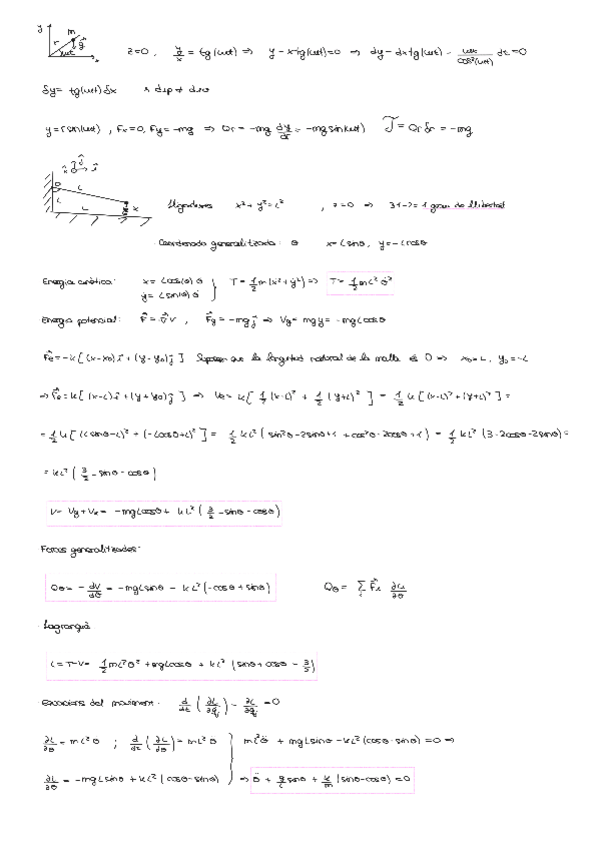 y
m
r
g
ωt
x
z=0 , y/x = tg(ωt) ⇒ y - x·tg(ωt)=0 ⇒ dy - dx tg(ωt) - ωx/cos²(ωt) dt =0
δy= tg(ωt) δx
y=r sin(ωt) , Fx=0, Fy=-mg ⇒ Qr = -mg dy/dr = -mg sin(ωt)
Lligadures x²+y²=L² , z=0 ⇒ 3·1-2= 1 grau de llibertat
Coordenada generalitzada: θ x=Lsinθ, y=-Lcosθ
Energia cinètica: ẋ= Lcos(θ) θ̇ T= 1/2 m(ẋ²+ẏ²) ⇒ T= 1/2 mL² θ̇²
ẏ= Lsin(θ) θ̇
Energia potencial: F=-∇V , Fg = -mg j ⇒ Vg= mgy= -mgLcosθ
Fe=-k[ (x-x0)i + (y-y0)j ] Suposem que la longitud natural de la molla és 0 ⇒ x0=L, y0=-L
⇒ Fe= k[ (x-L)i + (y+y0)j ] ⇒ Ve= k[ 1/2 (x-L)² + 1/2 (y+L)² ] = 1/2 k[ (x-L)² + (y+L)² ] =
= 1/2 k[ (Lsinθ-L)² + (-Lcosθ+L)² ] = 1/2 kL² ( sin²θ-2sinθ+1 + cos²θ-2cosθ+1 ) = 1/2 kL² (3-2cosθ-2sinθ) =
= kL² ( 3/2 - sinθ - cosθ )
V= Vg+Ve= -mgLcosθ+ kL² ( 3/2 - sinθ - cosθ )
Forces generalitzades:
Qθ= - dV/dθ = -mgLsinθ - kL² (-cosθ + sinθ) Qθ = Σ Fi
Lagrangià
L=T-V= 1/2 mL² θ̇² + mgLcosθ + kL² (sinθ+cosθ - 3/2)
Equacions del moviment: d/dt ( ∂L/∂q̇j ) - ∂L/∂qj =0
∂L/∂θ̇ = mL² θ̇ ; d/dt ( ∂L/∂θ̇ ) = mL² θ̈ mL²θ̈ + mgLsinθ - kL² (cosθ-sinθ) =0 ⇒
∂L/∂θ = -mgLsinθ + kL² (cosθ-sinθ) ⇒ θ̈ + g/L sinθ + k/m (sinθ-cosθ) =0